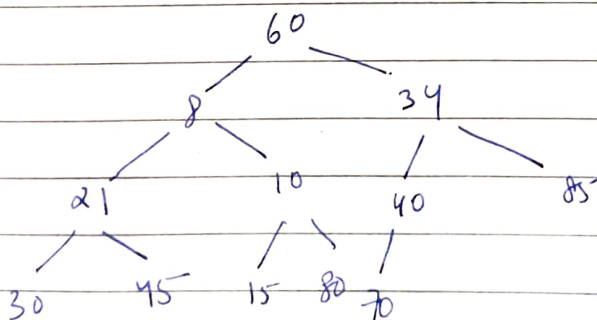 60
8 34
21 10 40 85
30 45 15 80 70